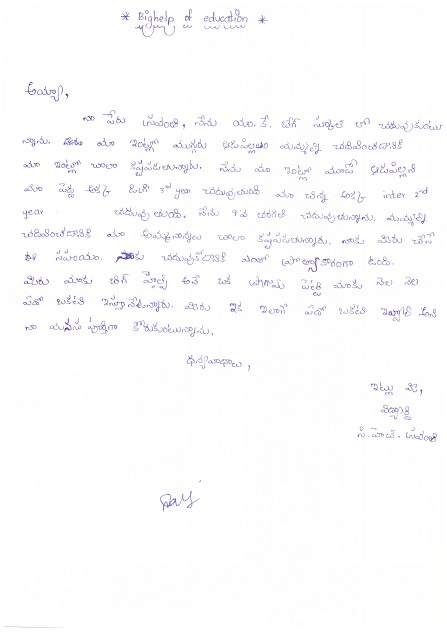 * Bighelp of education *
అయ్యా,
నా పేరు స్రవంతి, నేను యం.కే. బేగ్ స్కూల్ లో చదువుకుంటు
న్నాను. మా ఇంట్లో ముగ్గురు ఆడపిల్లలం మమ్మల్ని చదివించడానికి
మా ఇంట్లో చాలా కష్టపడుతున్నారు. నేను మా ఇంట్లో మూడో ఆడపిల్లని
మా పెద్ద అక్క డిగ్రీ 3rd year చదువుతుంది. మా చిన్న అక్క inter 2nd
year చదువుతుంది. నేను 9వ తరగతి చదువుతున్నాను. మమ్మల్ని
చదివించడానికి మా అమ్మనాన్నలు చాలా కష్టపడుతున్నారు. నాకు మీరు చేసే
ఈ సహాయం. నాకు చదువుకోడానికి ఎంతో ప్రోత్సాకారంగా ఉంది.
మీరు మాకు బిగ్ హెల్ప్ అనే ఒక ప్రోగ్రామ్ పెట్టి మాకు నెల నెల
ఏదో ఒకటి ఇస్తూనేఉన్నారు. మీరు ఇక ఇలాగే ఏదో ఒకటి ఇవ్వాలి అని
నా మనసు పూర్తిగా కోరుకుంటున్నాను.
ధన్యవాదాలు,
ఇట్లు మీ,
విద్యార్థి
సి.హెచ్. స్రవంతి